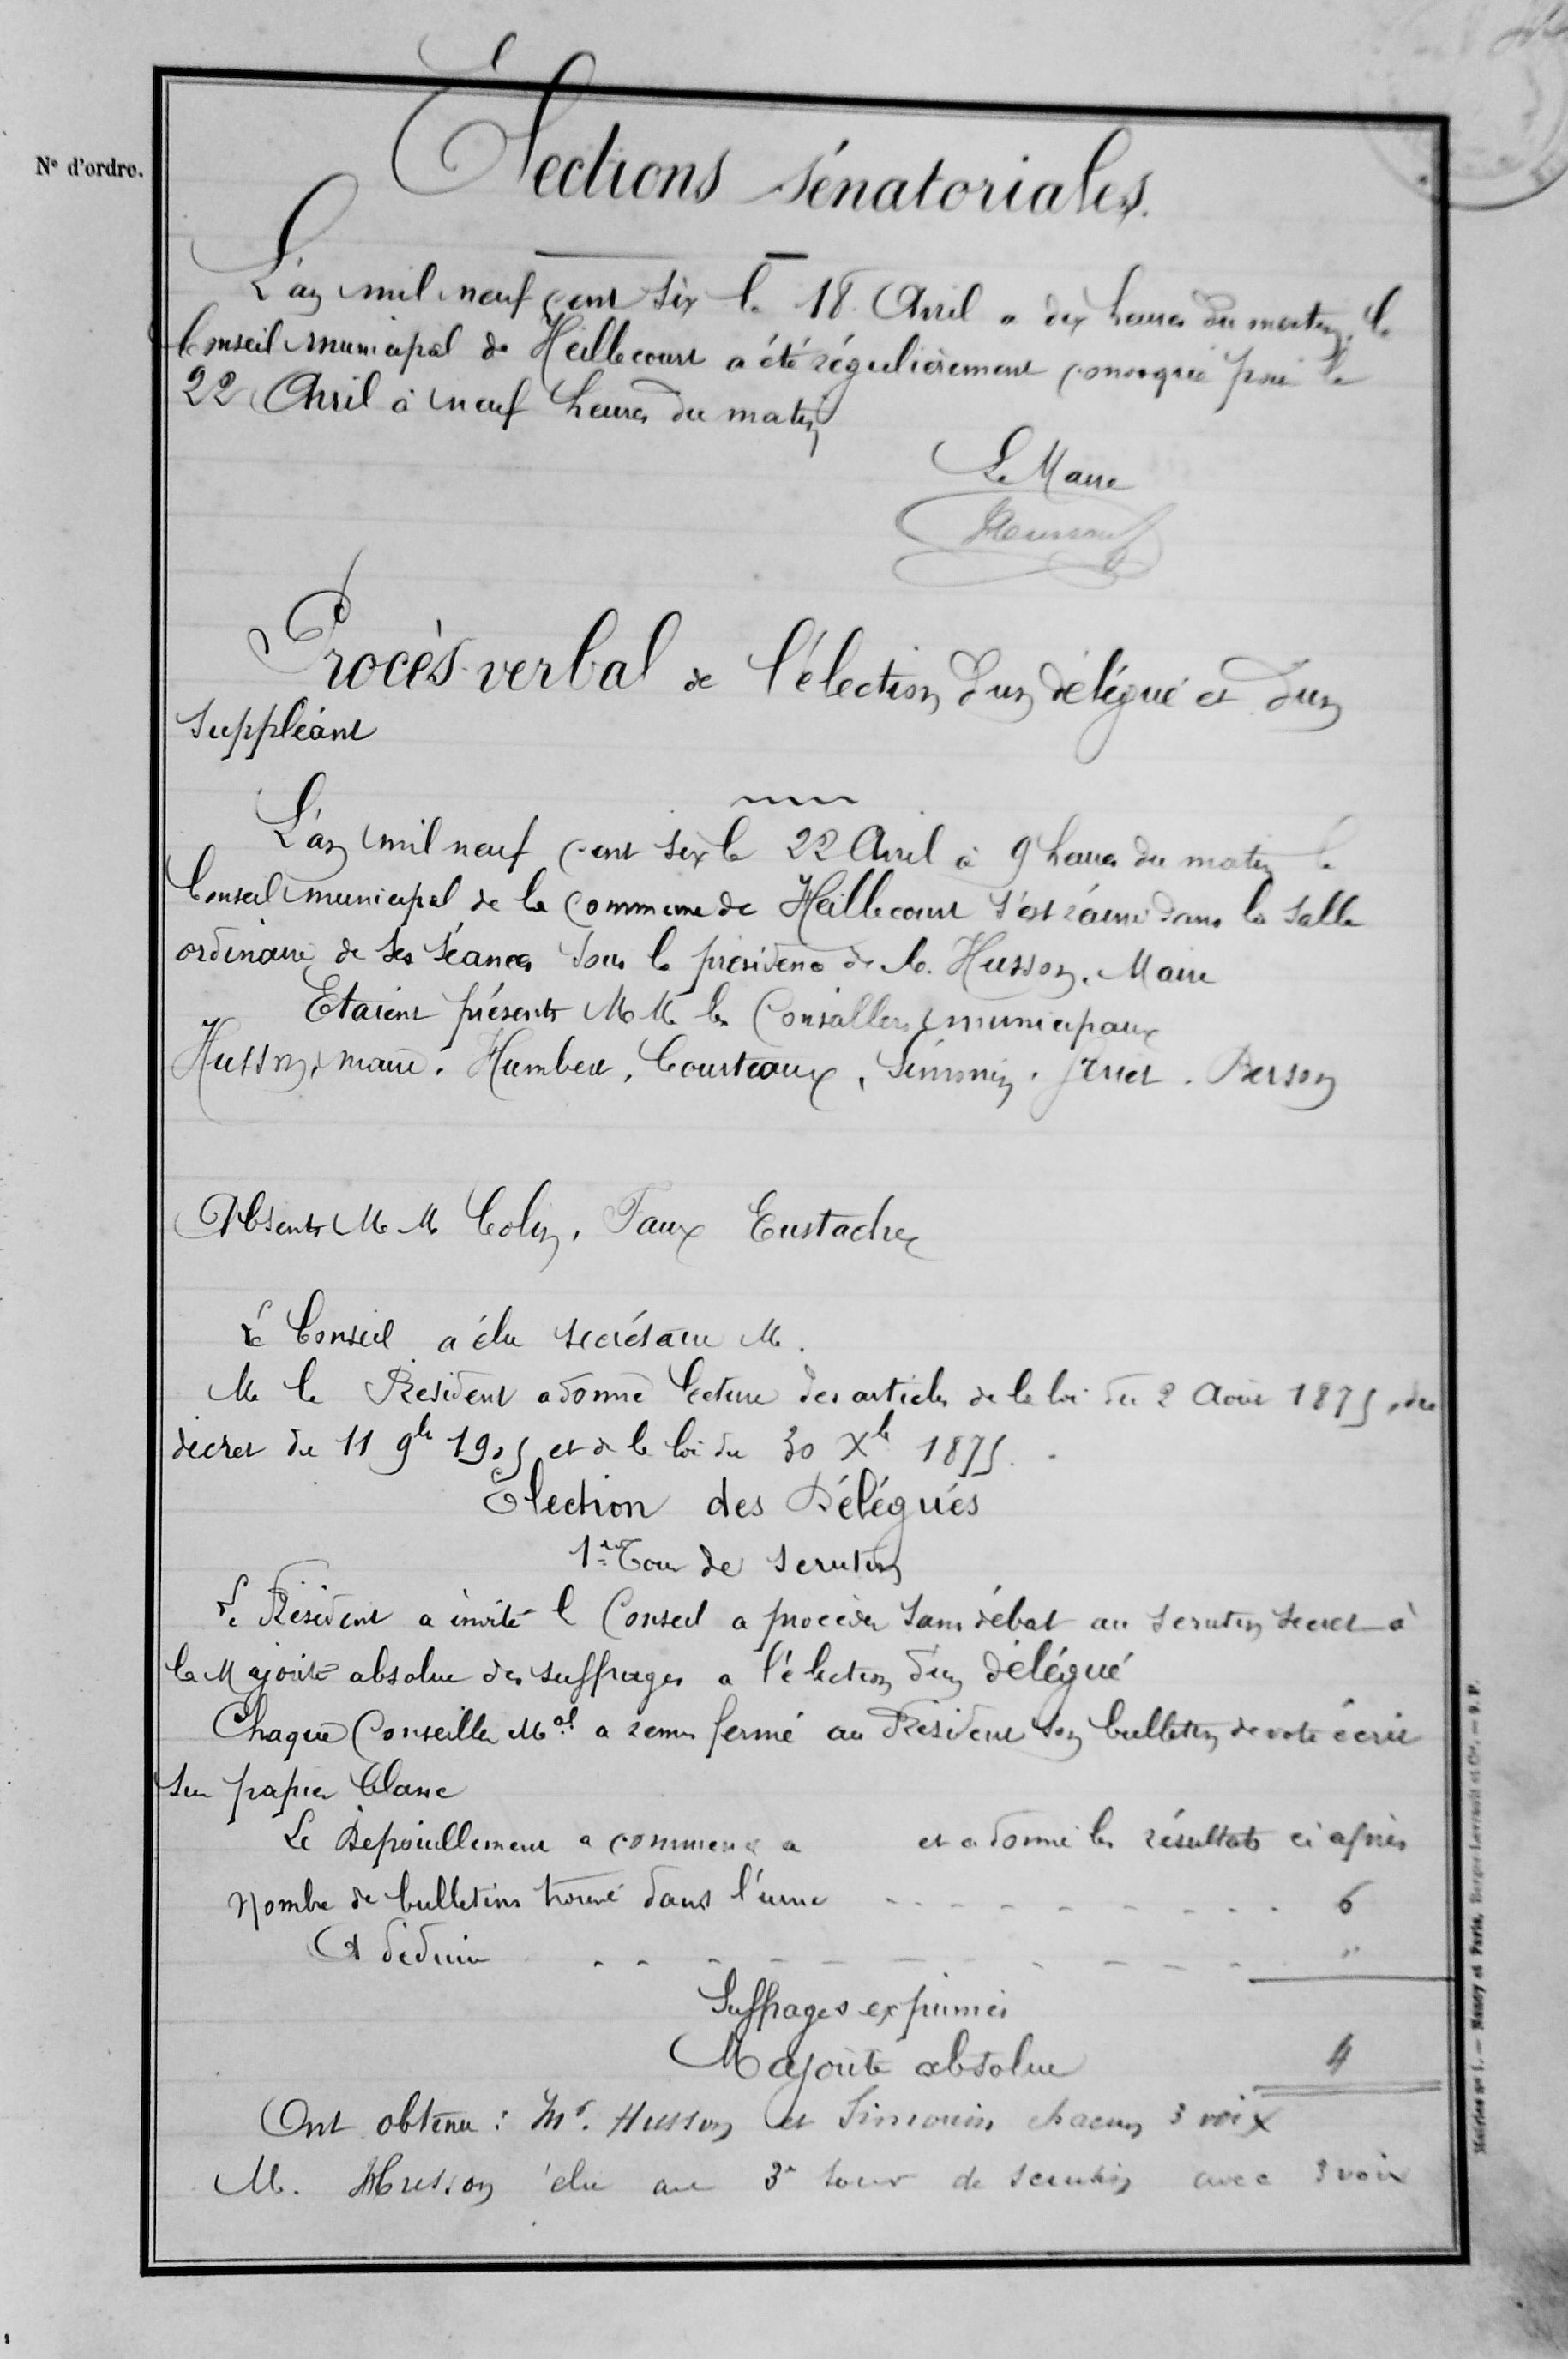 N° d'ordre.
Elections sénatoriales.
L'an mil neuf cent six le 18 Avril a dix heures du matin, le
Conseil municipal de Heillecourt a été régulièrement convoqué pour le
22 Avril à neuf heures du matin
Le Maire
Procès-verbal de l'élection d'un délégué et d'un
suppléant
L'an mil neuf cent six le 22 Avril à 9 heures du matin le
Conseil municipal de la Commune de Heillecourt s'est réuni dans la salle
ordinaire de ses séances sous la présidence de M. Husson, Maire
Etaient présents M M. les Conseillers municipaux
Husson, maire, Humbert, Courteaux, Simonin, Jeriet, Berson
Absents M M Colin, Faux Eustache
Le Conseil a élu secrétaire M.
M le Président a donné lecture des articles de la loi du 2 Août 1875, du
décret du 11 9bre 1905 et de la loi du 30 Xbre 1875.
Election des Délégués
1er Tour de scrutin
Le Président a invité le Conseil a procéder sans débat au scrutin secret à
la Majorité absolue des suffrages a l'élection d'un délégué
Chaque Conseiller Mal a remis fermé au Président son bulletin de vote écrit
sur papier blanc
Le Dépouillement a commencé a et a donné les résultats ci après
Nombre de bulletins trouvé dans l'urne - - - - - - - - - - 6
A déduire - - - - - - - - - - "
Suffrages exprimés
Majorité absolue 4
Ont obtenu : Mrs. Husson et Simonin chacun 3 voix
M. Husson élu au 3e tour de scrutin avec 3 voix
Mairies no 1. — Nancy et Paris, Berger-Levrault et Cie. — 9. P.